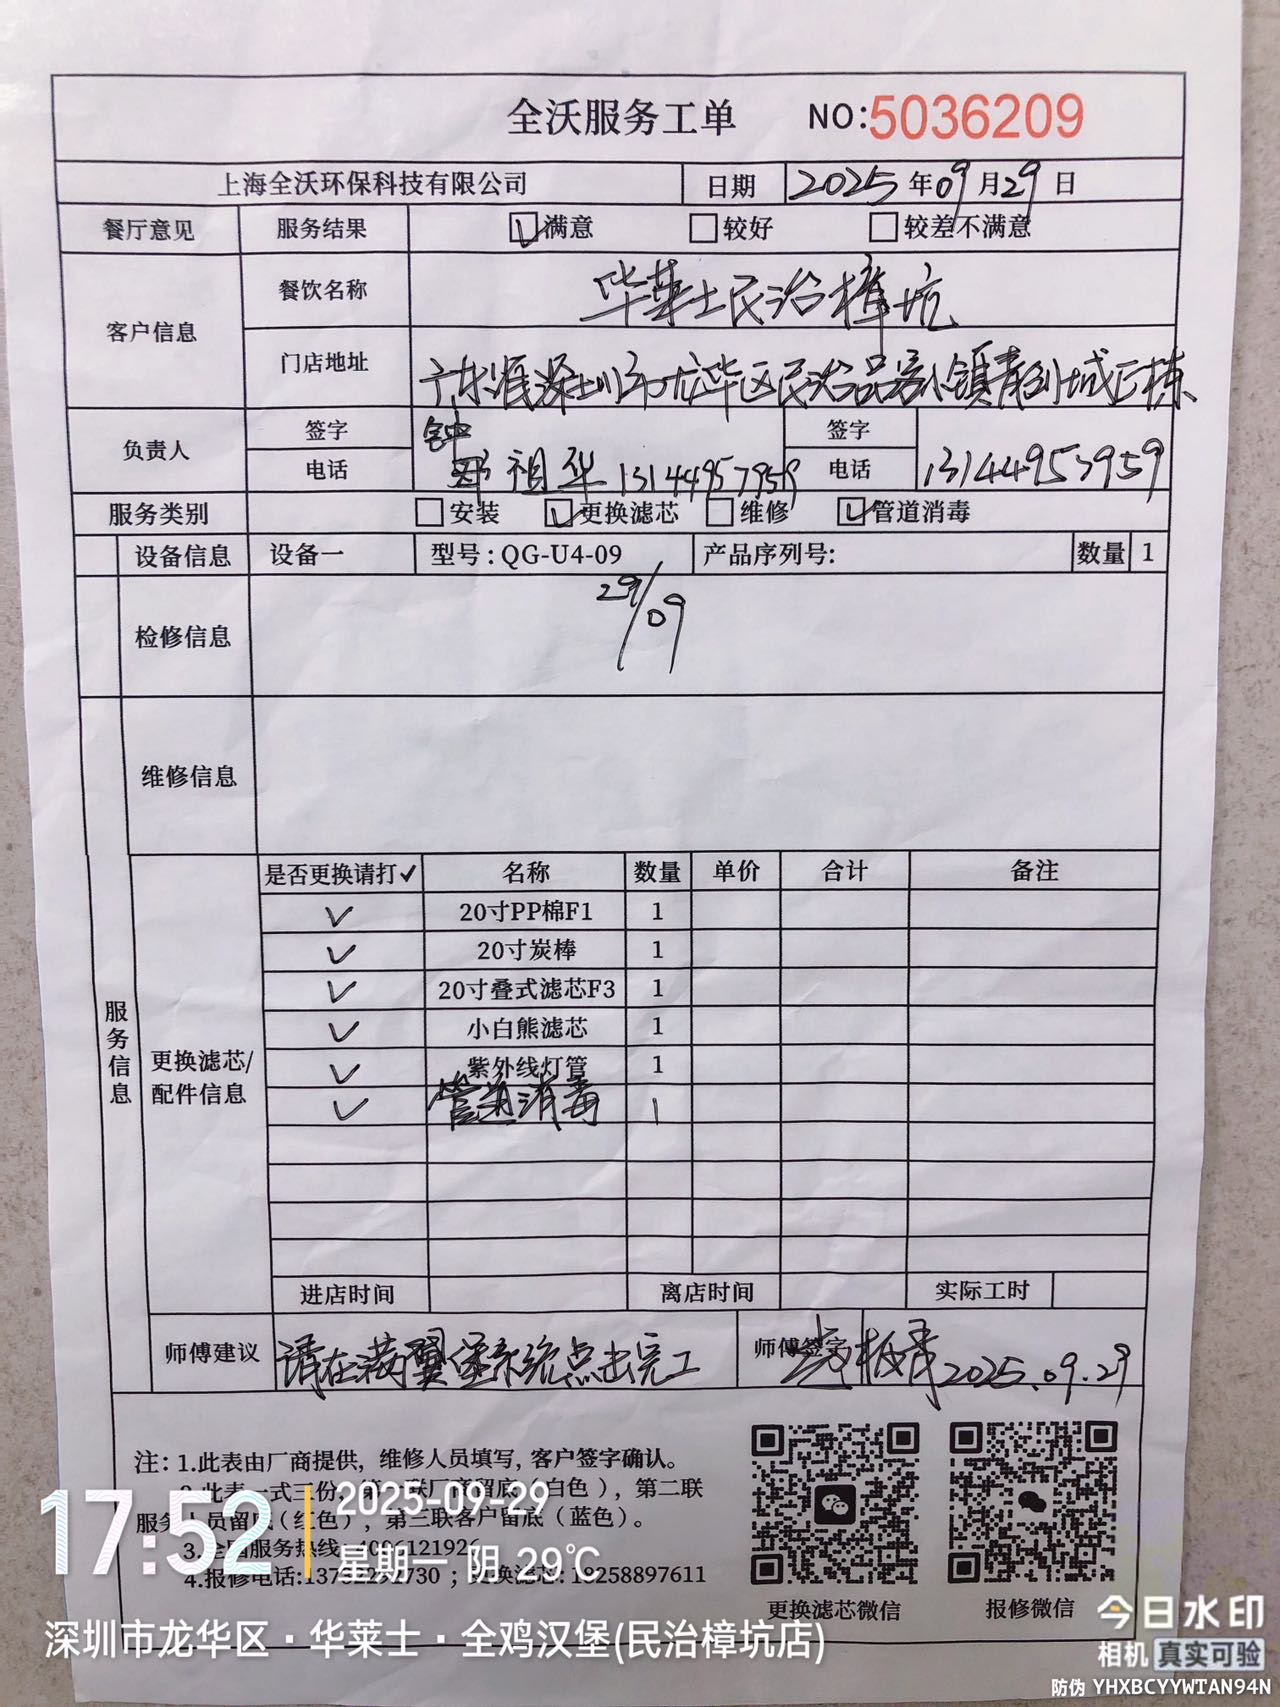 全沃服务工单 NO:5036209
上海全沃环保科技有限公司 日期 2025年09月29日
餐厅意见 服务结果 满意 较好 较差不满意
客户信息 餐饮名称 华莱士民治樟坑
门店地址 广东省深圳市龙华区民治品客小镇青创城E栋
负责人 签字 钟 签字
电话 祖华 13144957959 电话 13144953959
服务类别 安装 更换滤芯 维修 管道消毒
设备信息 设备一 型号：QG-U4-09 产品序列号: 数量 1
29/09
检修信息
维修信息
是否更换请打✓ 名称 数量 单价 合计 备注
✓ 20寸PP棉F1 1
✓ 20寸炭棒 1
✓ 20寸叠式滤芯F3 1
✓ 小白熊滤芯 1
✓ 紫外线灯管 1
✓ 管道消毒 1
服务信息
更换滤芯/
配件信息
进店时间 离店时间 实际工时
师傅建议 请在满翼堡系统点击完工 师傅签字 2025.09.29
注：1.此表由厂商提供，维修人员填写，客户签字确认。
此表一式三份，第一联厂商留底（白色），第二联
服务人员留底（红色），第三联客户留底（蓝色）。
3.全国服务热线 4006121926
4.报修电话: 730；更换滤芯: 258897611
更换滤芯微信 报修微信
17:52 2025-09-29
星期一 阴 29℃
深圳市龙华区·华莱士·全鸡汉堡(民治樟坑店)
今日水印
相机 真实可验
防伪 YHXBCYYWTAN94N